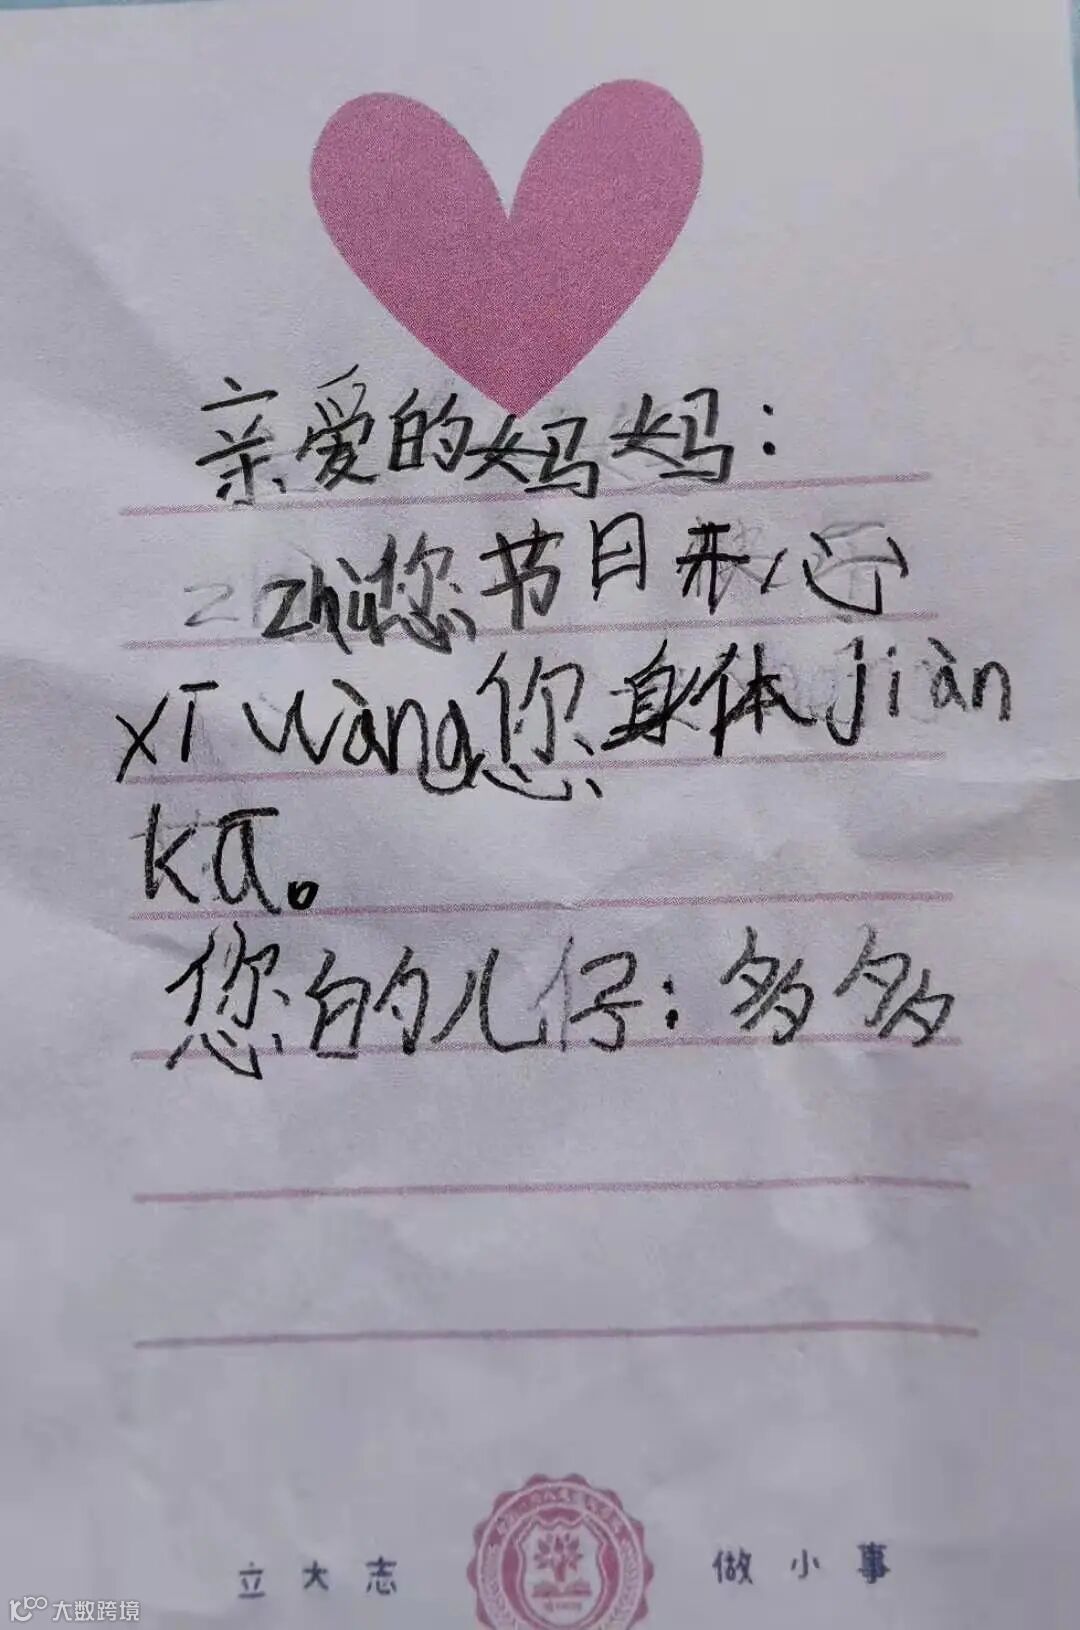 亲爱的妈妈：
zhù您节日开心
xī wàng您身体jiàn
kā。
您的儿仔：多多
立大志 做小事
大数跨境